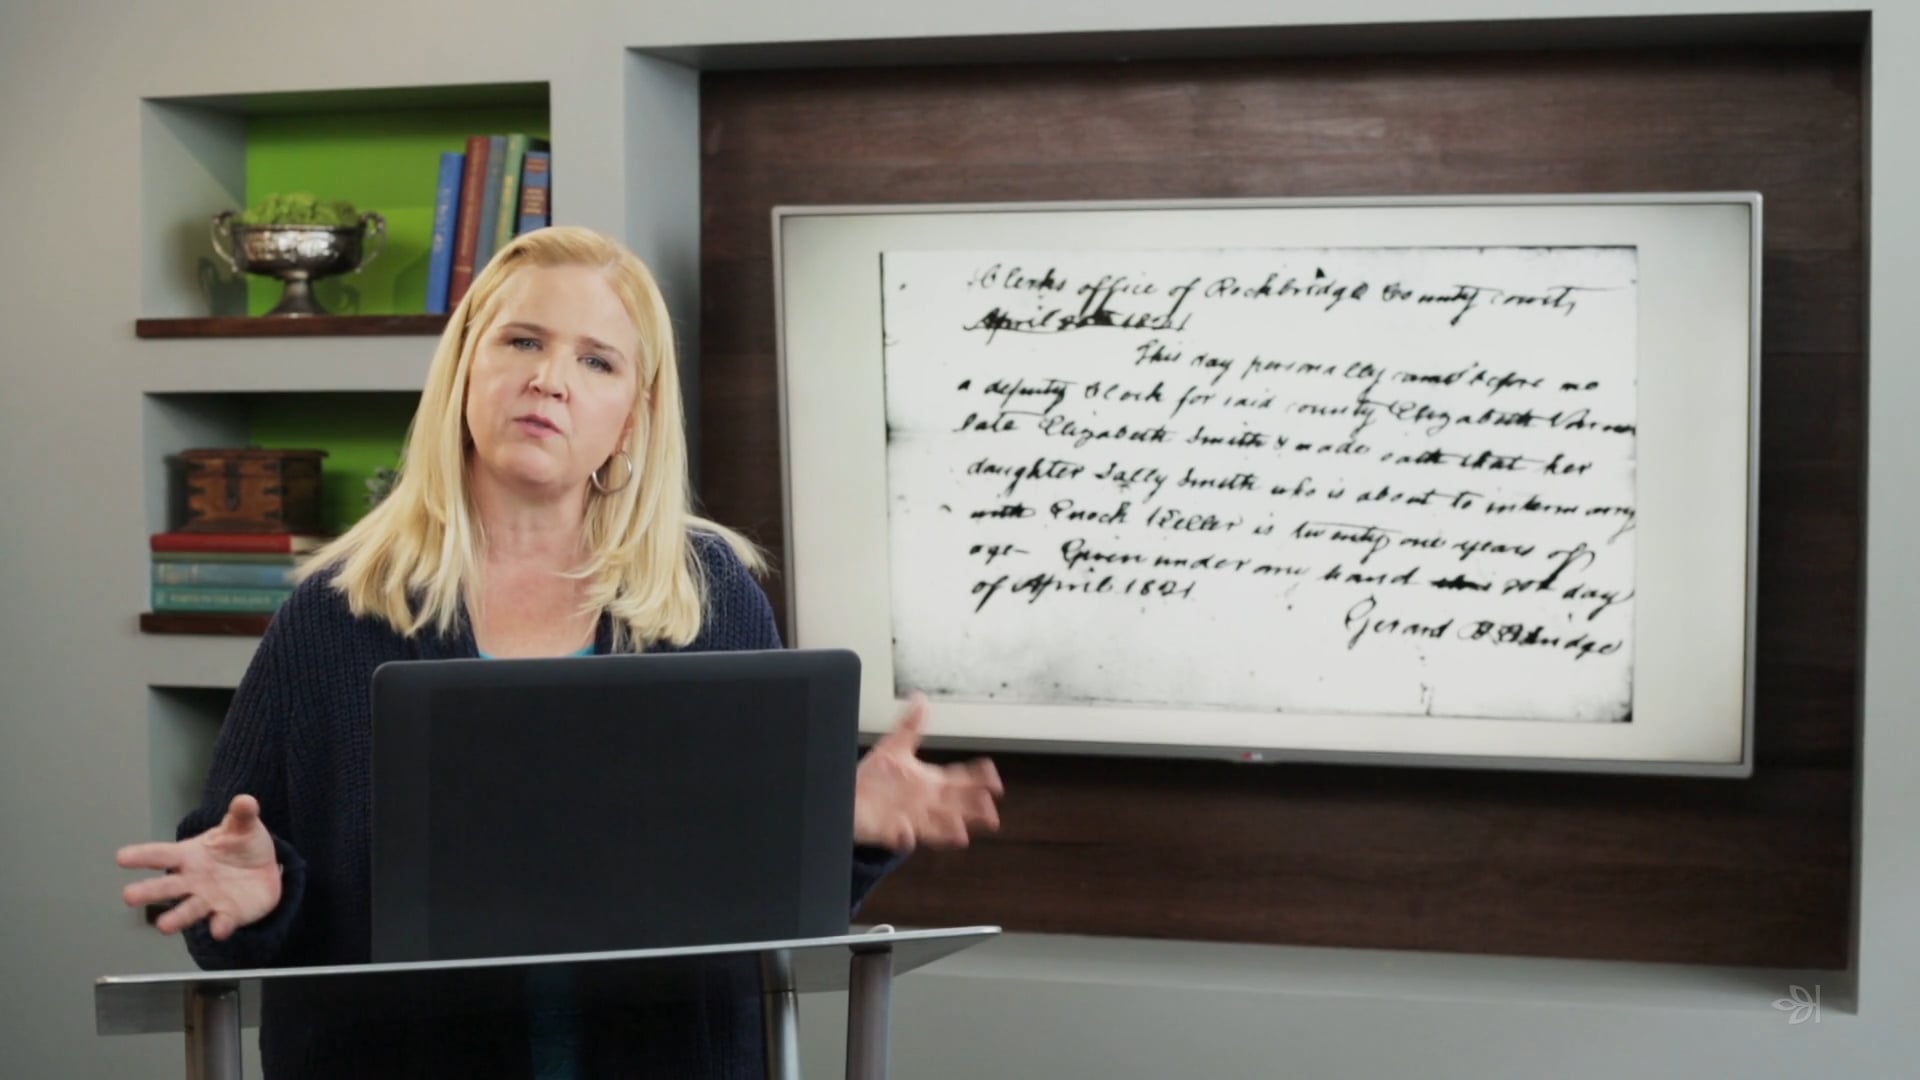 Clerks office of Rockbridge County court,
April 20th 1821
This day personally came before me
a deputy Clerk for said county Elizabeth
late Elizabeth Smith & made oath that her
daughter Sally Smith who is about to intermarry
with Enoch Keller is twenty one years of
age - Given under my hand this 20th day
of April 1821
Gerard